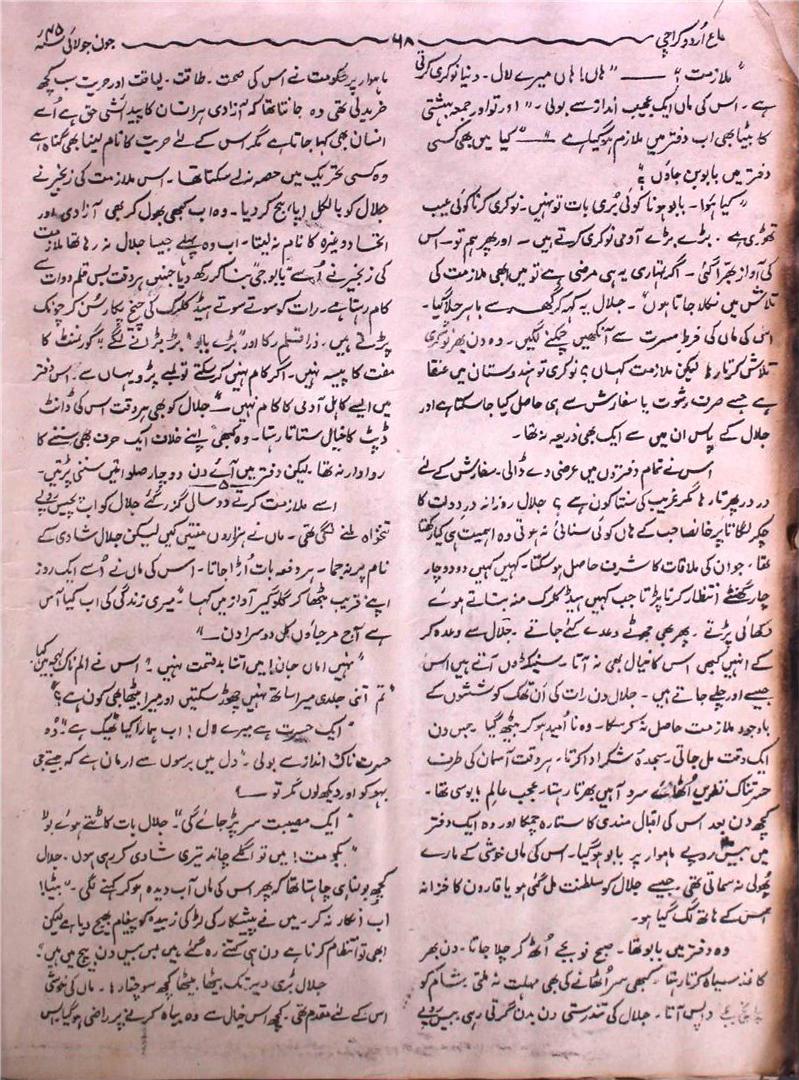 باغ اُردو کراچی
۶۸
جون جولائی ۴۵ء
"ملازمت؟" —— "ہاں! ہاں میرے لال۔ دنیا نوکری کرتی
ہے۔ اس کی ماں ایک عجیب انداز سے بولی۔ "اور تو اور جمعہ بہشتی
کا بیٹا بھی اب دفتر میں ملازم ہو گیا ہے —— "کیا میں بھی کسی
دفتر میں بابو بن جاؤں؟
"کیا ہوا۔ بابو ہونا کوئی بُری بات تو نہیں۔ نوکری کرنا کوئی عیب
تھوڑی ہے۔ بڑے بڑے آدمی نوکری کرتے ہیں۔۔ اور پھر ہم تو۔ اس
کی آواز بھرّا گئی۔ اگر تمہاری یہ ہی مرضی ہے تو میں ابھی ملازمت کی
تلاش میں نکلا جاتا ہوں"۔ جلال یہ کہہ کر گھر سے باہر چلا گیا۔
اس کی ماں کی فرطِ مسرت سے آنکھیں چمکنے لگیں۔ وہ دن بھر نوکری
تلاش کرتا رہا لیکن ملازمت کہاں؟ نوکری تو ہندوستان میں عنقا
ہے جسے صرف رشوت یا سفارش سے ہی حاصل کیا جا سکتا ہے اور
جلال کے پاس ان میں سے ایک بھی ذریعہ نہ تھا۔
اس نے تمام دفتروں میں عرضی دے ڈالی۔ سفارش کے لئے
در در پھرتا رہا مگر غریب کی سنتا کون ہے؟ جلال روزانہ در دولت کا
چکر لگاتا پر خانصاحب کے ہاں کوئی سنائی نہ ہوتی وہ اہمیت ہی کیا رکھتا
تھا۔ جو ان کی ملاقات کا شرف حاصل ہو سکتا۔ کہیں کہیں دو دو چار
چار گھنٹے انتظار کرنا پڑتا جب کہیں ہیڈ کلرک منہ بناتے ہوئے
دکھائی پڑتے۔ پھر بھی جھوٹے وعدے کئے جاتے۔ جلال سے وعدہ کر
کے انہیں کبھی اس کا خیال بھی نہ آتا۔ سینکڑوں آتے ہیں اس
جیسے اور چلے جاتے ہیں۔ جلال دن رات کی اَن تھک کوششوں کے
باوجود ملازمت حاصل نہ کر سکا۔ وہ نا اُمید ہو کر بیٹھ گیا جس دن
ایک وقت مل جاتی۔ سجدۂ شکر ادا کرتا۔ ہر وقت آسمان کی طرف
حسرتناک نظریں اُٹھائے سرد آہیں بھرتا رہتا۔ عجب عالمِ مایوسی تھا۔
کچھ دن بعد اس کی اقبال مندی کا ستارہ چمکا اور وہ ایک دفتر
میں بیس روپے ماہوار پر بابو ہو گیا۔ اس کی ماں خوشی کے مارے
پھولی نہ سماتی تھی۔ جیسے جلال کو سلطنت مل گئی ہو یا قارون کا خزانہ
اس کے ہاتھ لگ گیا ہو۔
وہ دفتر میں بابو تھا۔ صبح نو بجے اُٹھ کر چلا جاتا۔ دن بھر
کاغذ سیاہ کرتا رہتا۔ کبھی سر اُٹھانے کی بھی مہلت نہ ملتی شام کو
پانچ بجے واپس آتا۔ جلال کی تندرستی دن بدن گرتی رہی بیس روپے
ماہوار پر حکومت نے اس کی صحت۔ طاقت۔ لیاقت اور حریت سب کچھ
خرید لی تھی وہ جانتا تھا کہ آزادی ہر انسان کا پیدائشی حق ہے اُسے
انسان بھی کہا جاتا ہے مگر اس کے لئے حریت کا نام لینا بھی گناہ ہے
وہ کسی تحریک میں حصہ نہ لے سکتا تھا۔ اس ملازمت کی زنجیر نے
جلال کو بالکل اپاہج کر دیا۔ وہ اب کبھی بھول کر بھی آزادی اور
اتحاد وغیرہ کا نام نہ لیتا۔ اب وہ پہلے جیسا جلال نہ رہا تھا ملازمت
کی زنجیر نے اُسے "بابو جی" بنا کر رکھ دیا جنہیں ہر وقت بس قلم دوات سے
کام رہتا ہے۔ رات کو سوتے سوتے ہیڈ کلرک کی چیخ پکار سُن کر چونک
پڑتے ہیں۔ ذرا قلم رکا اور "بڑے بابو" بڑ بڑانے لگے "گورنمنٹ کا
مفت کا پیسہ نہیں۔ اگر کام نہیں کر سکتے تو لمبے پڑو یہاں سے۔ اس دفتر
میں ایسے کاہل آدمی کا کام نہیں — جلال کو بھی ہر وقت اس کی ڈانٹ
ڈپٹ کا خیال ستاتا رہتا۔ وہ کبھی اپنے خلاف ایک حرف بھی سننے کا
روادار نہ تھا۔ لیکن دفتر میں آئے دن دو چار صلواتیں سننی پڑتیں۔
۵
اسے ملازمت کرتے دو سال گزر گئے جلال کو اب پچیس روپے
تنخواہ ملنے لگی تھی۔ ماں نے ہزاروں منتیں کیں لیکن جلال شادی کے
نام پر نہ جما۔ ہر دفعہ بات اُڑا جاتا۔ اس کی ماں نے اُسے ایک روز
اپنے قریب بٹھا کر گلوگیر آواز میں کہا "میری زندگی کی اب کیا آس
ہے آج مر جاؤں کل دوسرا دن —"
"نہیں اماں جان! میں اتنا بدقسمت نہیں"۔ اس نے المناک لہجہ میں کہا
"تم اتنی جلدی میرا ساتھ نہیں چھوڑ سکتیں اور میرا بیٹھا بھی کون ہے؟"
"ایک حسرت ہے میرے لال! اب ہمارا کیا ٹھیک ہے" وہ
حسرت ناک انداز سے بولی۔ "دل میں برسوں سے ارمان ہے کہ جیتے جی
بہو کو اور دیکھ لوں مگر تو —؟
"ایک مصیبت سر پڑ جائے گی"۔ جلال بات کاٹتے ہوئے بولا
"بکو مت! میں تو اگلے چاند تیری شادی کر رہی ہوں۔ جلال
کچھ بولنا ہی چاہتا تھا کہ پھر اس کی ماں آب دیدہ ہو کر کہنے لگی۔ "بیٹا!
اب انکار نہ کر۔ میں نے پیشکار کی لڑکی زبیدہ کو پیغام بھیج دیا ہے لیکن
ابھی تو انتظام کرنا ہے دن ہی کتنے رہ گئے ہیں بس بیس دن بیچ میں ہیں"۔
جلال بُری دیر تک بیٹھا بیٹھا کچھ سوچتا رہا۔ ماں کی خوشی
اس کے لئے مقدم تھی۔ کچھ اس خیال سے وہ بیاہ کرنے پر راضی ہو گیا۔ بس